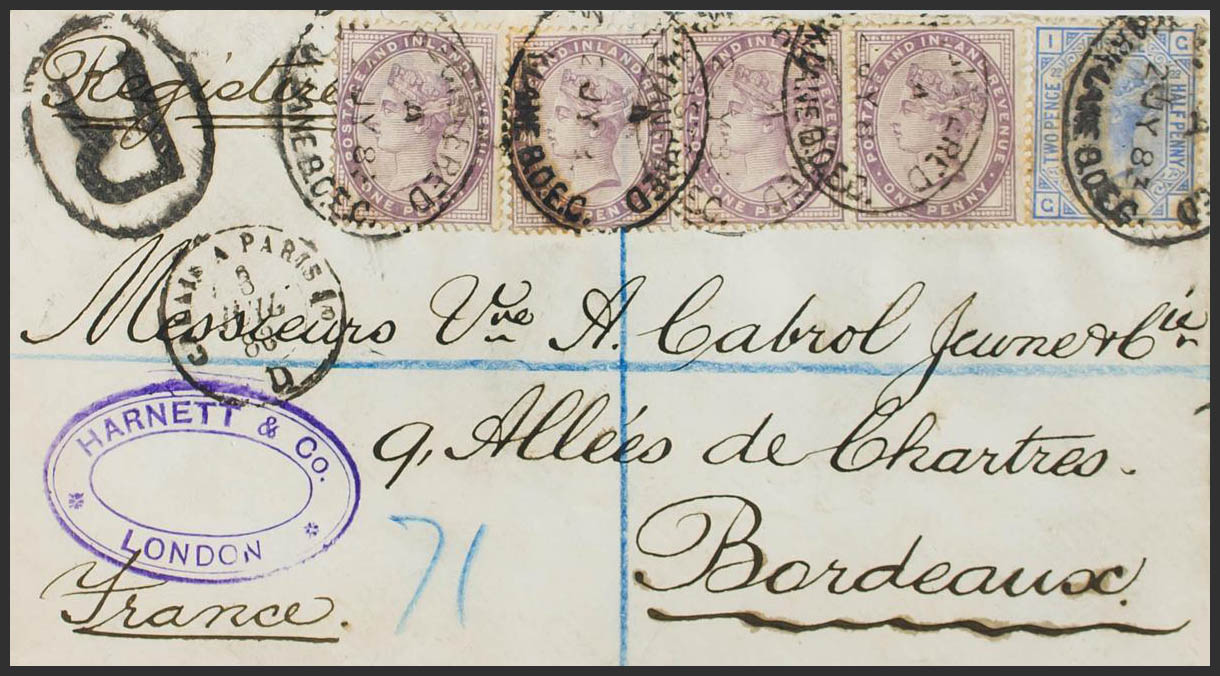 Registered
R
POSTAGE AND INLAND REVENUE
ONE PENNY
POSTAGE AND INLAND REVENUE
PENNY
POSTAGE AND INLAND REVENUE
ONE
POSTAGE AND INLAND REVENUE
ONE PENNY
I G
TWO PENCE HALF PENNY
G
MARK LANE B.O.E.C.
CALAIS A PARIS
8
JUIL
D
Messieurs Vve A. Cabrol Jeune & Cie
HARNETT & Co.
LONDON
9, Allées de Chartres.
71
Bordeaux.
France.